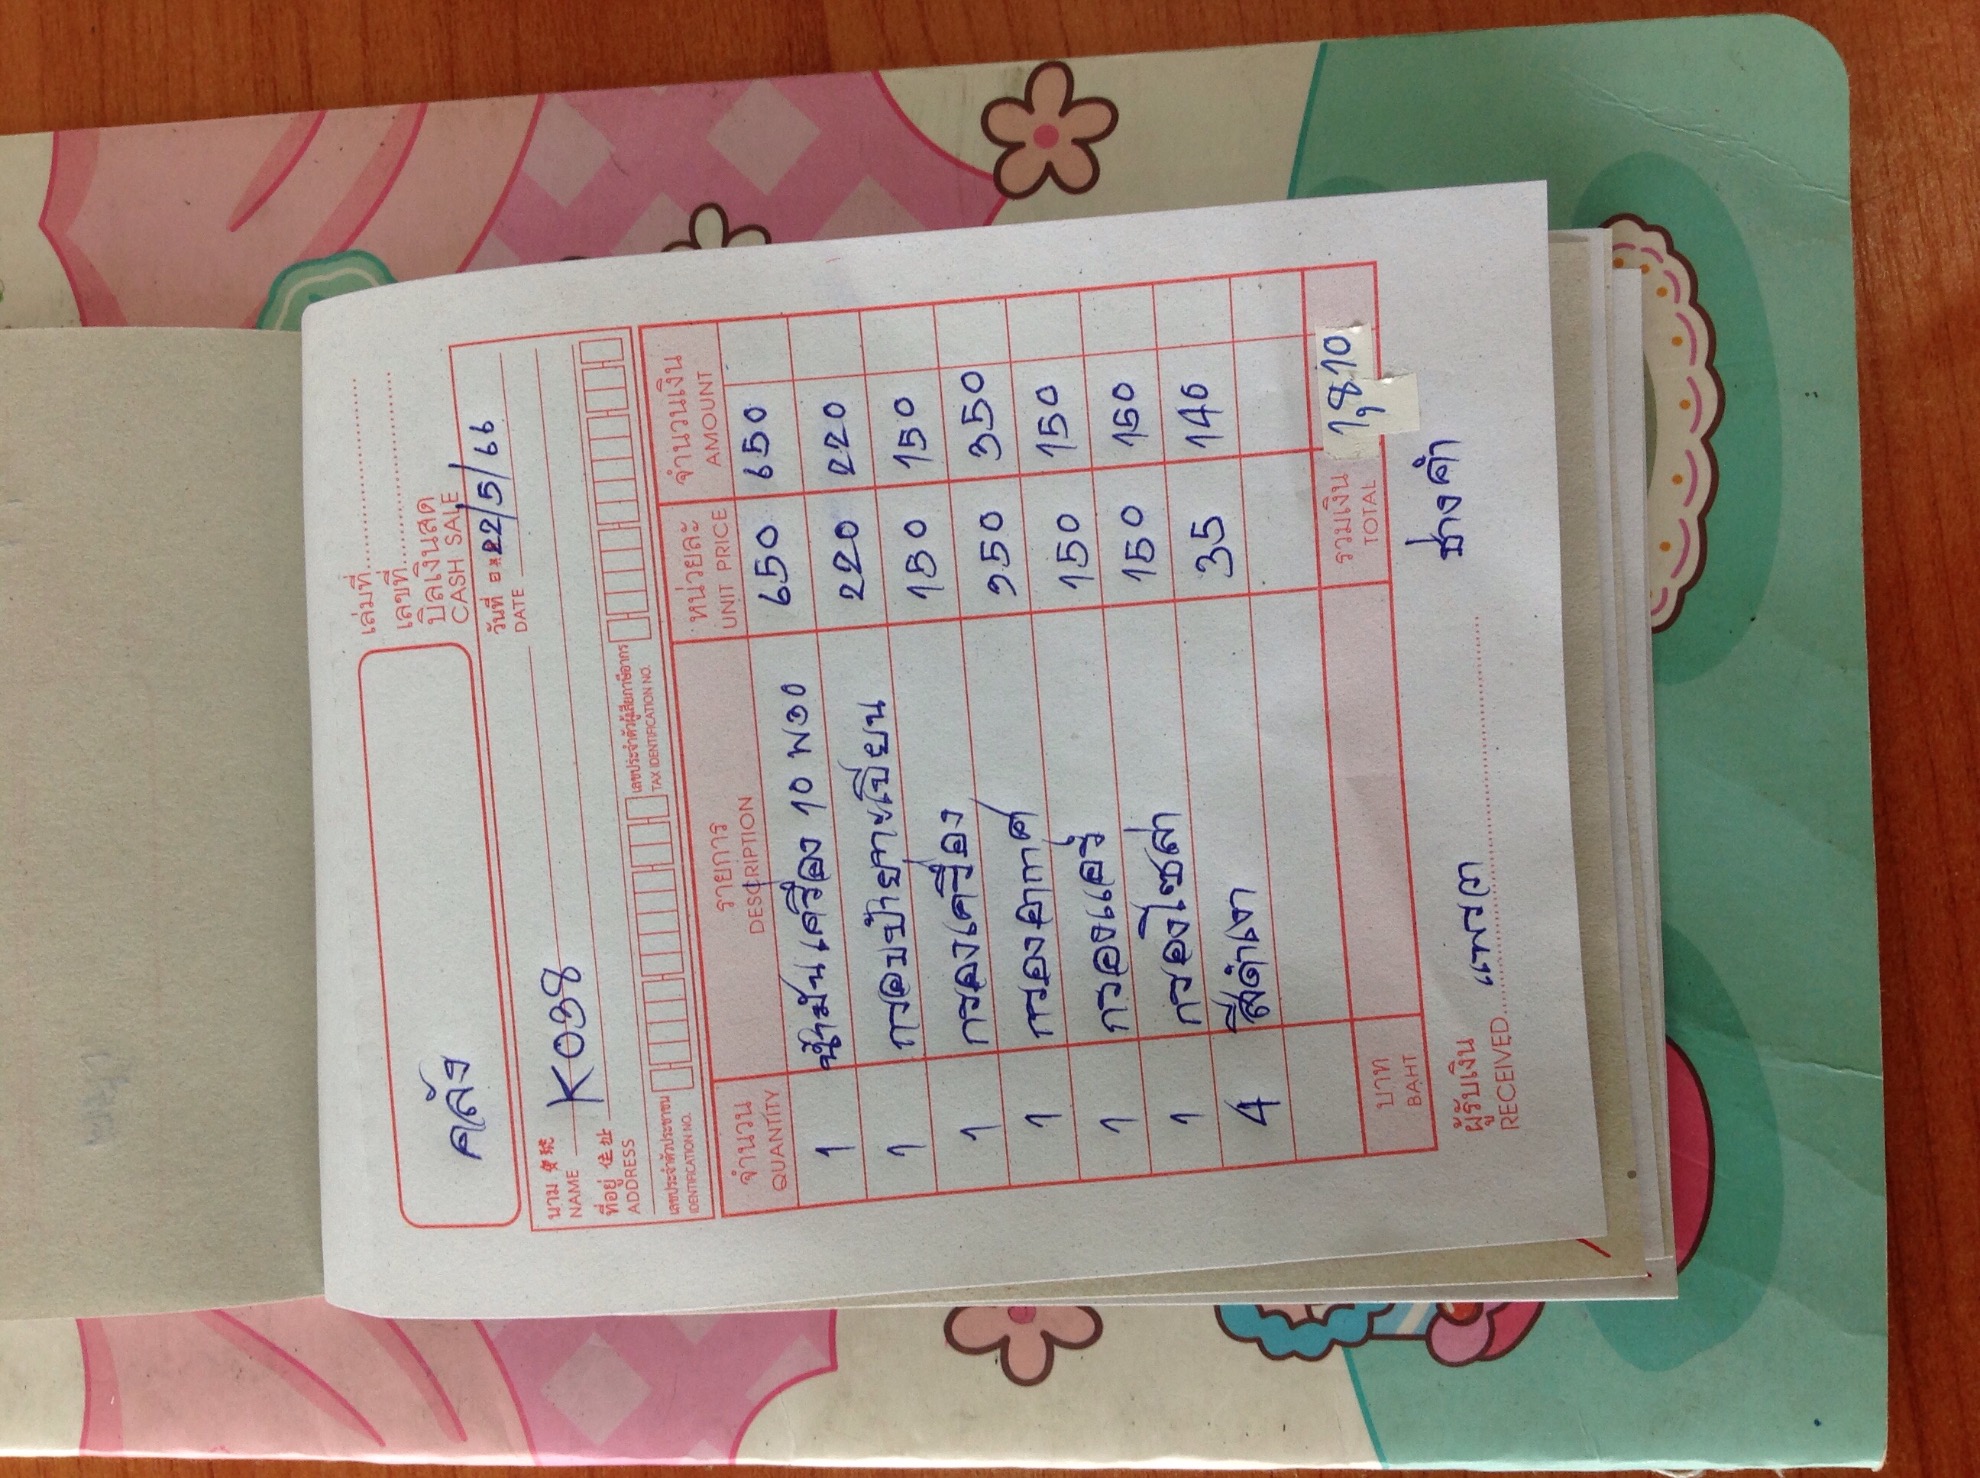 เล่มที่
เลขที่
คลัง
บิลเงินสด
CASH SALE
นาม 號 K038
NAME
วันที่ 22/5/66
DATE
ที่อยู่ 住址
ADDRESS
เลขประจำตัวประชาชน
IDENTIFICATION NO.
เลขประจำตัวผู้เสียภาษีอากร
TAX IDENTIFICATION NO.
จำนวน รายการ หน่วยละ จำนวนเงิน
QUANTITY DESCRIPTION UNIT PRICE AMOUNT
1 น้ำมันเครื่อง 10 พวง 650 650
1 กรองเปาะยาเปียน 220 220
1 กรองเครื่อง 150 150
1 กรองอากาศ 350 350
1 กรองแอร์ 150 150
1 กรองโซล่า 150 150
4 สีดำเงา 35 140
บาท รวมเงิน 1,810
BAHT TOTAL
ผู้รับเงิน แพรวา ช่างคำ
RECEIVED